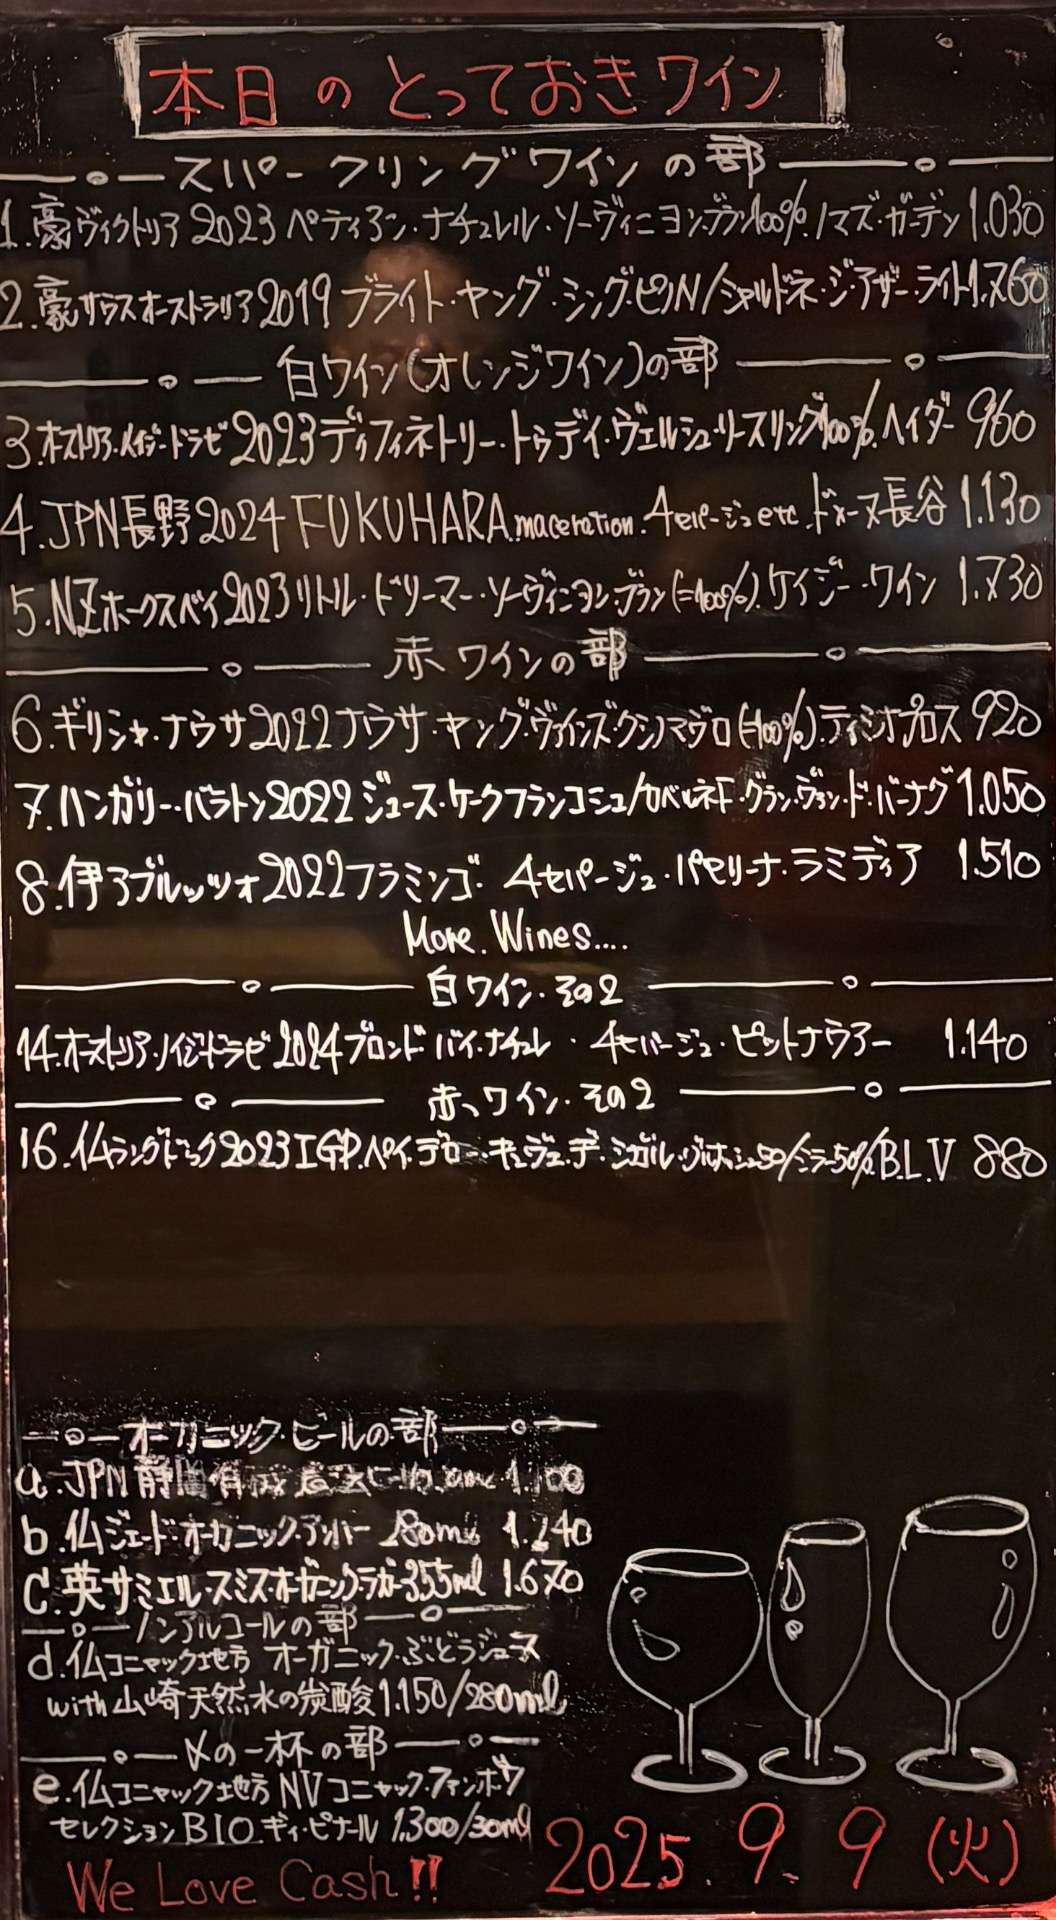 本日のとっておきワイン
スパークリングワインの部
1.豪ヴィクトリア2023ペティアン・ナチュレル・ソーヴィニヨンブラン100%/ノマズ・ガーデン 1.030
2.豪サウスオーストラリア2019ブライト・ヤング・シングス・ピノN/シャルドネ・ジ・アザー・ライト1.760
白ワイン(オレンジワイン)の部
3.オーストリア・ノイジードラーゼ2023ディフィネトリー・トゥデイ・ヴェルシュ・リースリング100%.ヘイダー 960
4.JPN長野2024 FUKUHARA.maceration.4セパージュetc.ドメーヌ長谷 1.130
5.NZホークスベイ2023リトル・ドリーマー・ソーヴィニヨン・ブラン(=100%).ケイジー・ワイン 1.730
赤ワインの部
6.ギリシャ・ナウサ2022ナウサ・ヤング・ヴァインズ・クシノマヴロ(=100%).ティミオプロス 920
7.ハンガリー・バラトン2022ジュース・ケークフランコシュ/カベルネF・グラン・ヴァン・ド・バーナグ 1.050
8.伊アブルッツォ2022フラミンゴ・4セパージュ・パセリーナ・ラミディア 1.510
More.Wines....
白ワイン.その2
14.オーストリア・ノイジードラーゼ2024ブロンド・バイ・ナチュレ・4セパージュ・ピットナウアー 1.140
赤ワイン.その2
16.仏ラングドック2023IGP.ペイ・デロー・キュヴェ・デ・シガル・ジルホシュ50/シラー50%/B.L.V 880
オーガニック・ビールの部
a.JPN静岡 1.100
b.仏ジェード・オーガニック・アンバー 280ml 1.240
c.英サミエル・スミスオーガニック・ラガー355ml 1.670
ノンアルコールの部
d.仏コニャック地方 オーガニック・ぶどうジュース
with山崎天然水の炭酸1.150/280ml
〆の一杯の部
e.仏コニャック地方NVコニャック・ファンボワ
セレクションBIO ギィ・ピナール 1.300/30ml
We Love Cash!!
2025.9.9(火)